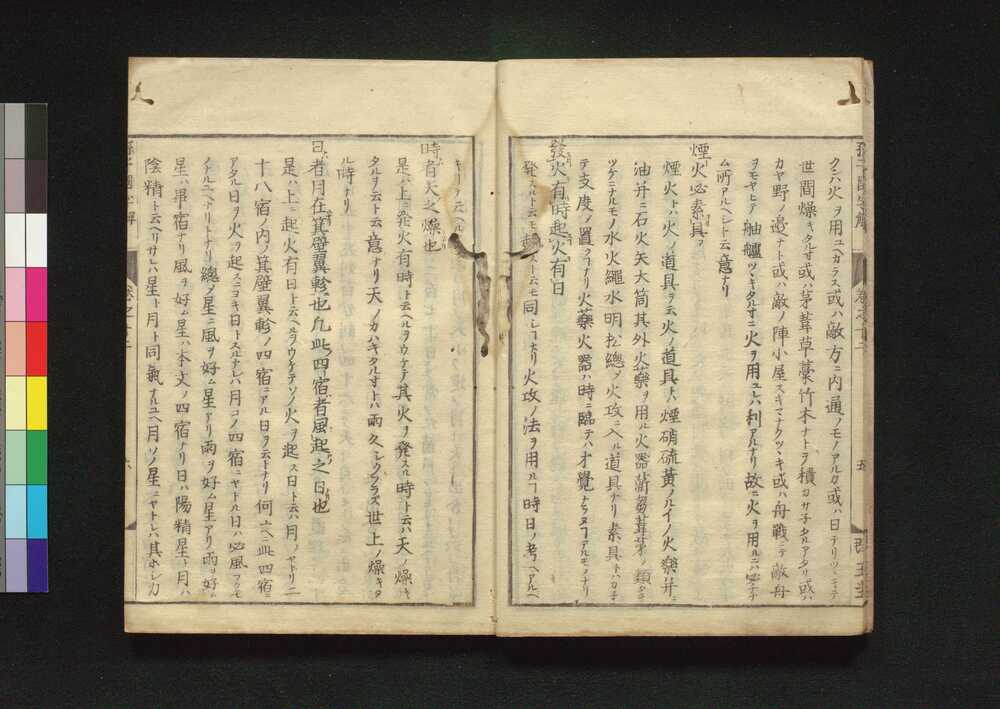 クハ火ヲ用ユヘカラス或ハ敵方ニ内通ノモノアルカ或ハ日テリツヽキテ
世間燥キタル寸或ハ茅葺草藁竹木ナトヲ積カサ子タルアタリ或ハ
カヤ野ノ邊ナト或ハ敵ノ陣小屋スキマナクツヽキ或ハ舟戰ニテ敵舟
ヲモヤヒテ舳艫ツヽキタル寸ニ火ヲ用ユレハ利アルナリ故ニ火ヲ用ルニハ必
ム所アルヘシト云意ナリ
煙火必素具
煙火トハ火ノ道具ヲ云火ノ道具トハ煙硝硫黄ノルイノ火藥并ニ
油并ニ石火矢大筒其外火藥ヲ用ル火器葺茅ノ類
ツケニナルモノ水火繩水明松總メ火攻ニ入ル道具ナリ素具トハカ子
テ支度メ置クナリ火藥火器ハ時ニ臨テハ才覺トヽノヘアルモノナリ
發火有時起火有日
發スルト云モ起スト云モ同シナリ火攻ノ法ヲ用ルニ時日ノ考ヘアルヘ
キヿヲ云ヘル
時者天之燥也
是ハ上ニ發火有時ト云ヘルヲウケテ其火ヲ發スル時ト云ハ天ノ燥キ
タルヲ云ト云意ナリ天ノカハキタル寸トハ雨久シクフラス世上ノ燥キタ
ル時ナリ
日者月在箕壁翼軫也凡此四宿者風起之日也
是ハ上ニ起火有日ト云ヘルヲウケテソノ火ヲ起ス日トハ月ノヤトリ二
十八宿ノ内ノ箕壁翼軫ノ四宿ニアル日ヲ云トナリ何ニ此四宿ニ
アタル日ヲ火ヲ起スニヨキ日トスルナレハ月コノ四宿ニヤトル日ハ必風フク
ノアルユヘナリトナリ總メ星ニ風ヲ好ム星アリ雨ヲ好ム星アリ雨ヲ好ム
星ハ畢宿ナリ風ヲ好ム星ハ本文ノ四宿ナリ日ハ陽精星ト月ハ
陰精ト云ヘリサレハ星ト月ト同氣ナルユヘ月ソノ星ニヤトレハ其ホシノ